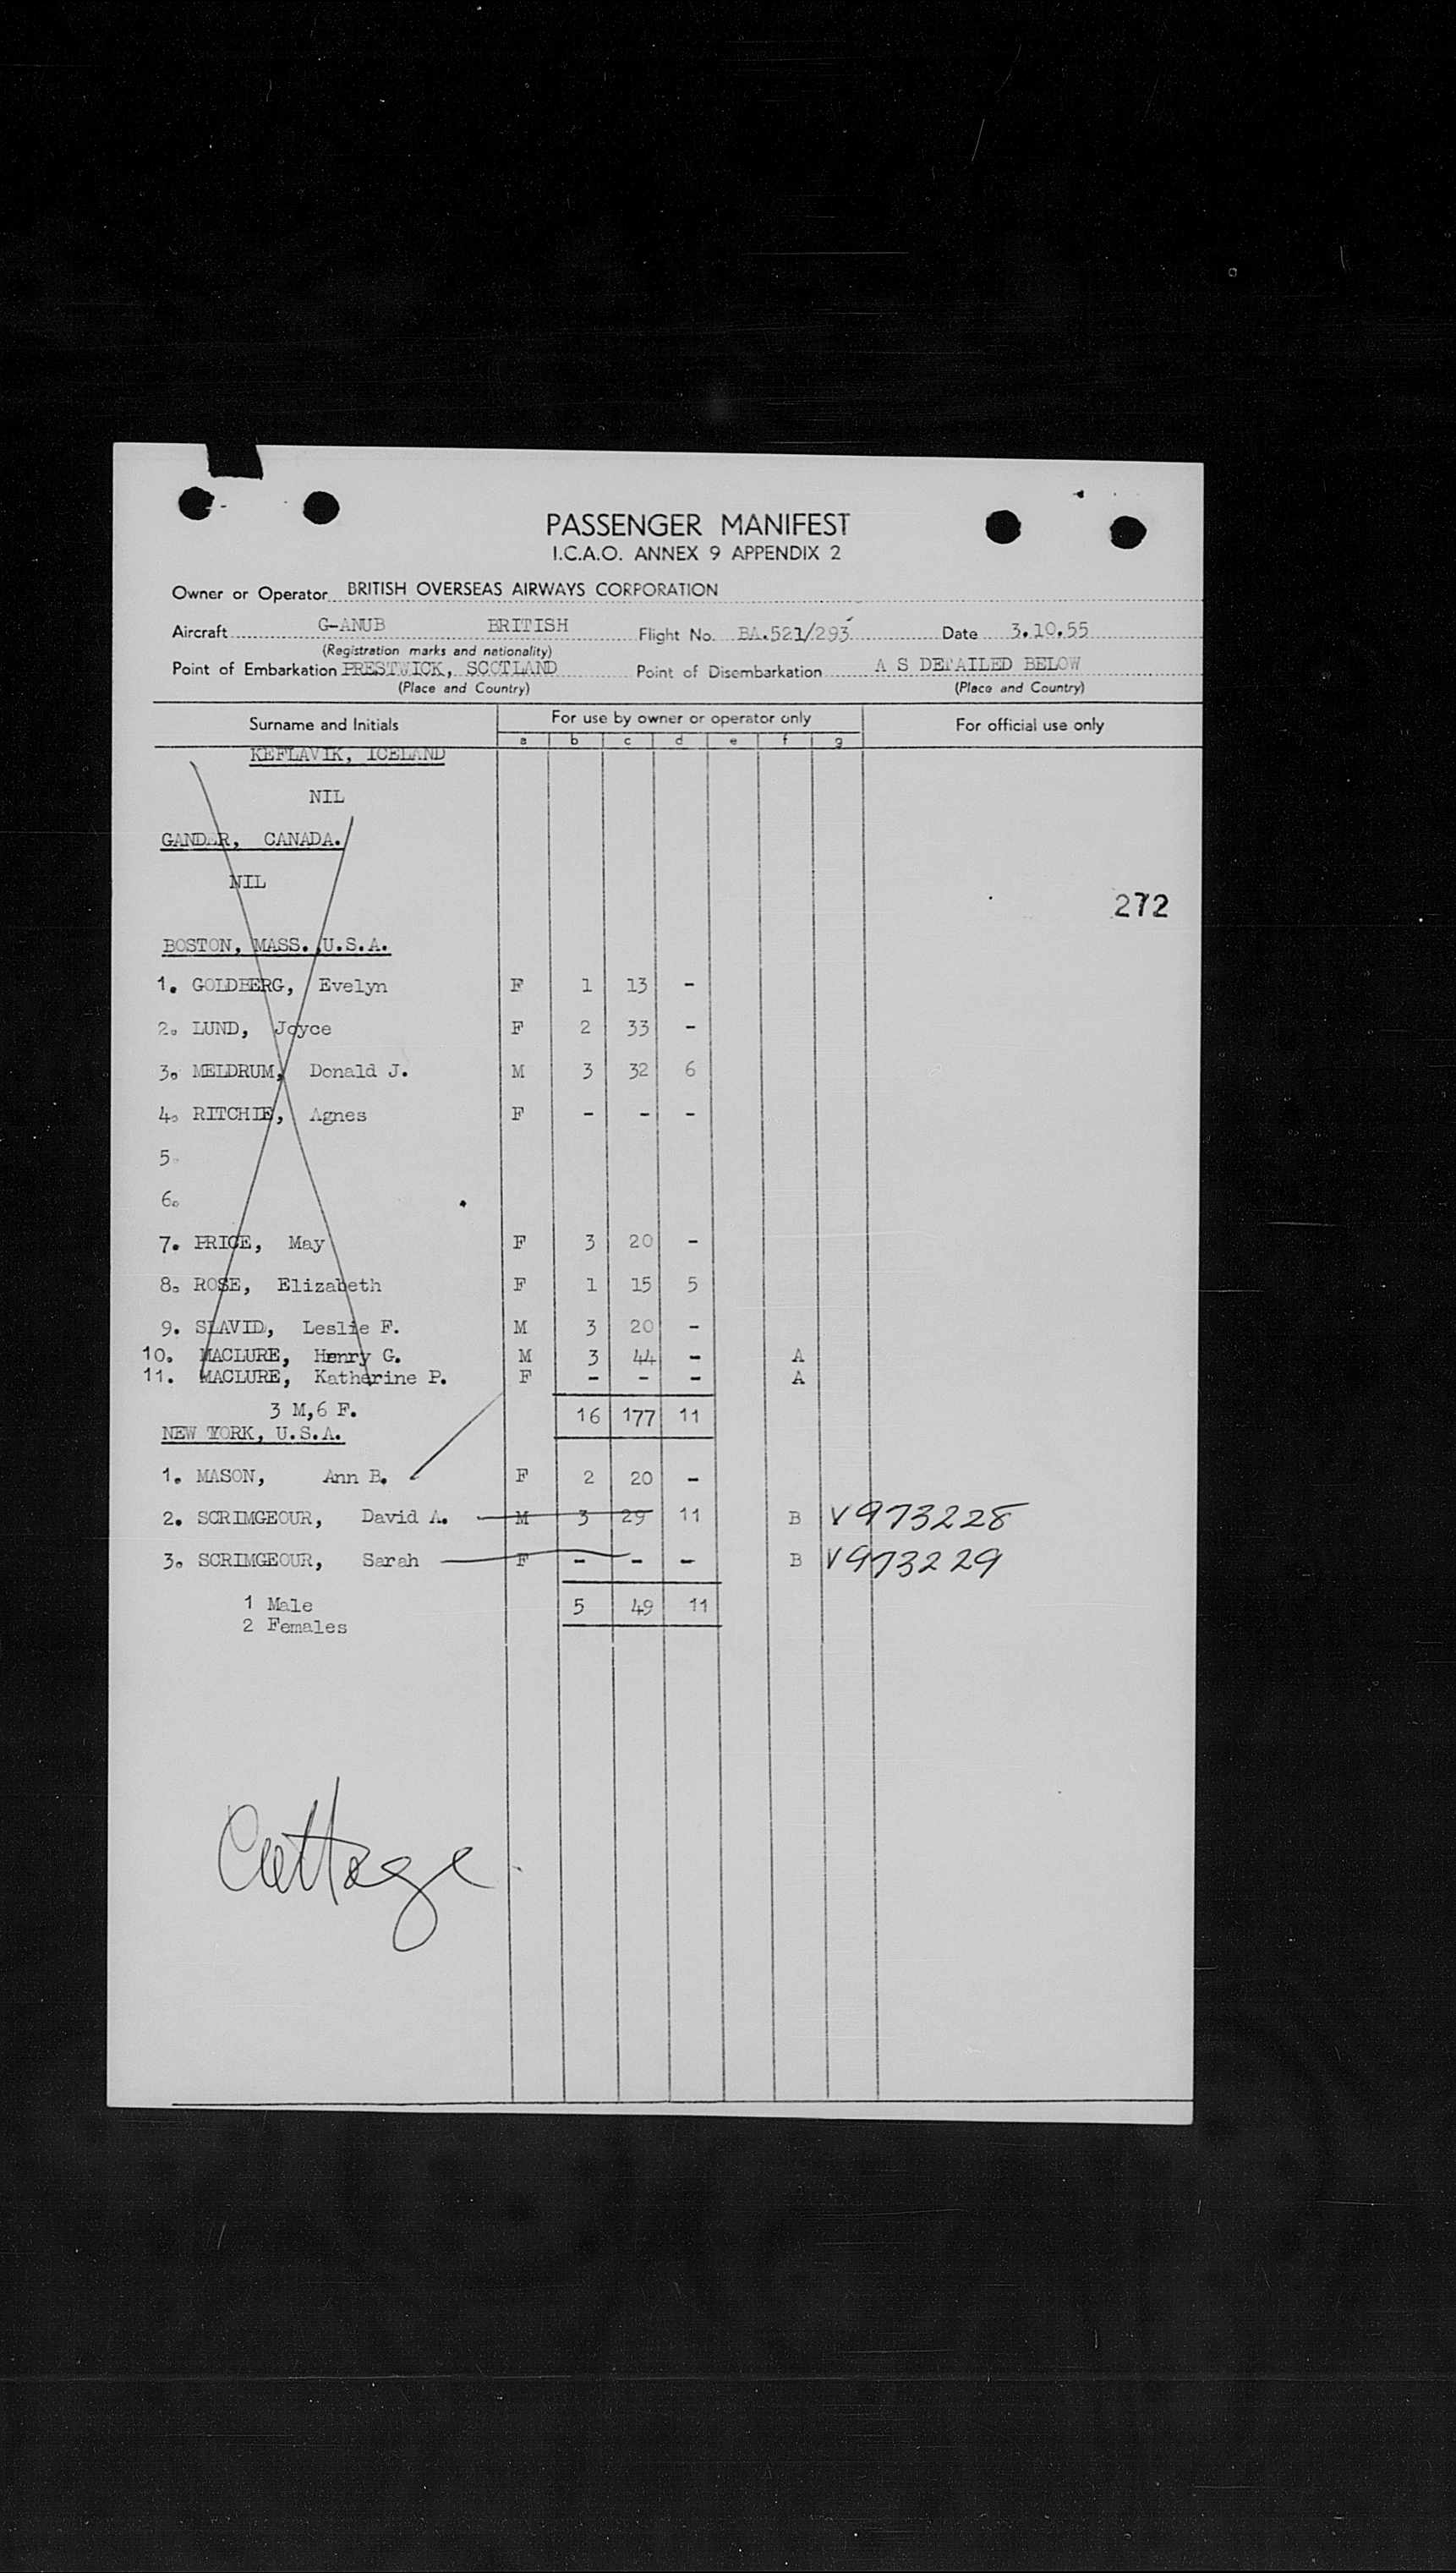 PASSENGER MANIFEST
I.C.A.O. ANNEX 9 APPENDIX 2
Owner or Operator BRITISH OVERSEAS AIRWAYS CORPORATION
Aircraft G-ANUB BRITISH Flight No. BA.521/293 Date 3.10.55
(Registration marks and nationality)
Point of Embarkation PRESTWICK, SCOTLAND Point of Disembarkation A S DETAILED BELOW
(Place and Country) (Place and Country)
Surname and Initials For use by owner or operator only For official use only
a b c d e f g
KEFLAVIK, ICELAND
NIL
GANDER, CANADA.
NIL
272
BOSTON, MASS. U.S.A.
1. GOLDBERG, Evelyn F 1 13 -
2. LUND, Joyce F 2 33 -
3. MELDRUM, Donald J. M 3 32 6
4. RITCHIE, Agnes F - - -
5.
6.
7. PRICE, May F 3 20 -
8. ROSE, Elizabeth F 1 15 5
9. SLAVID, Leslie F. M 3 20 -
10. MACLURE, Henry G. M 3 44 - A
11. MACLURE, Katherine P. F - - - A
3 M,6 F. 16 177 11
NEW YORK, U.S.A.
1. MASON, Ann B. F 2 20 -
2. SCRIMGEOUR, David A. M 3 29 11 B V973228
3. SCRIMGEOUR, Sarah F - - - B V973229
1 Male 5 49 11
2 Females
Cottage